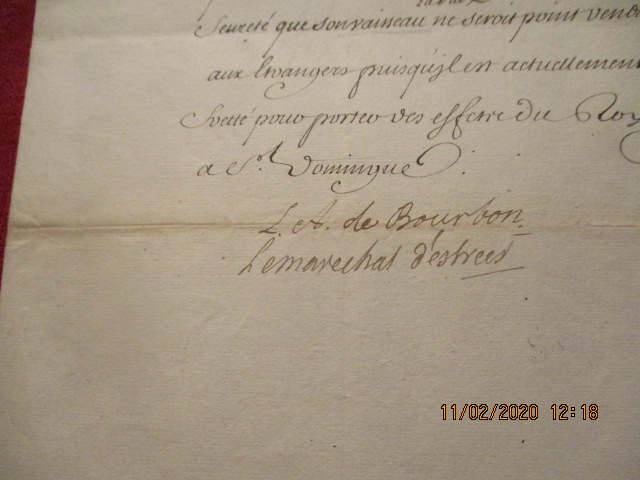 Seureté que son vaisseau ne seroit point vend
aux Etrangers puisqu'jl est actuellement
fretté pour porter des effets du Roy
a St. Domingue.
L. A. de Bourbon
Le marechal d'estrees
11/02/2020 12:18